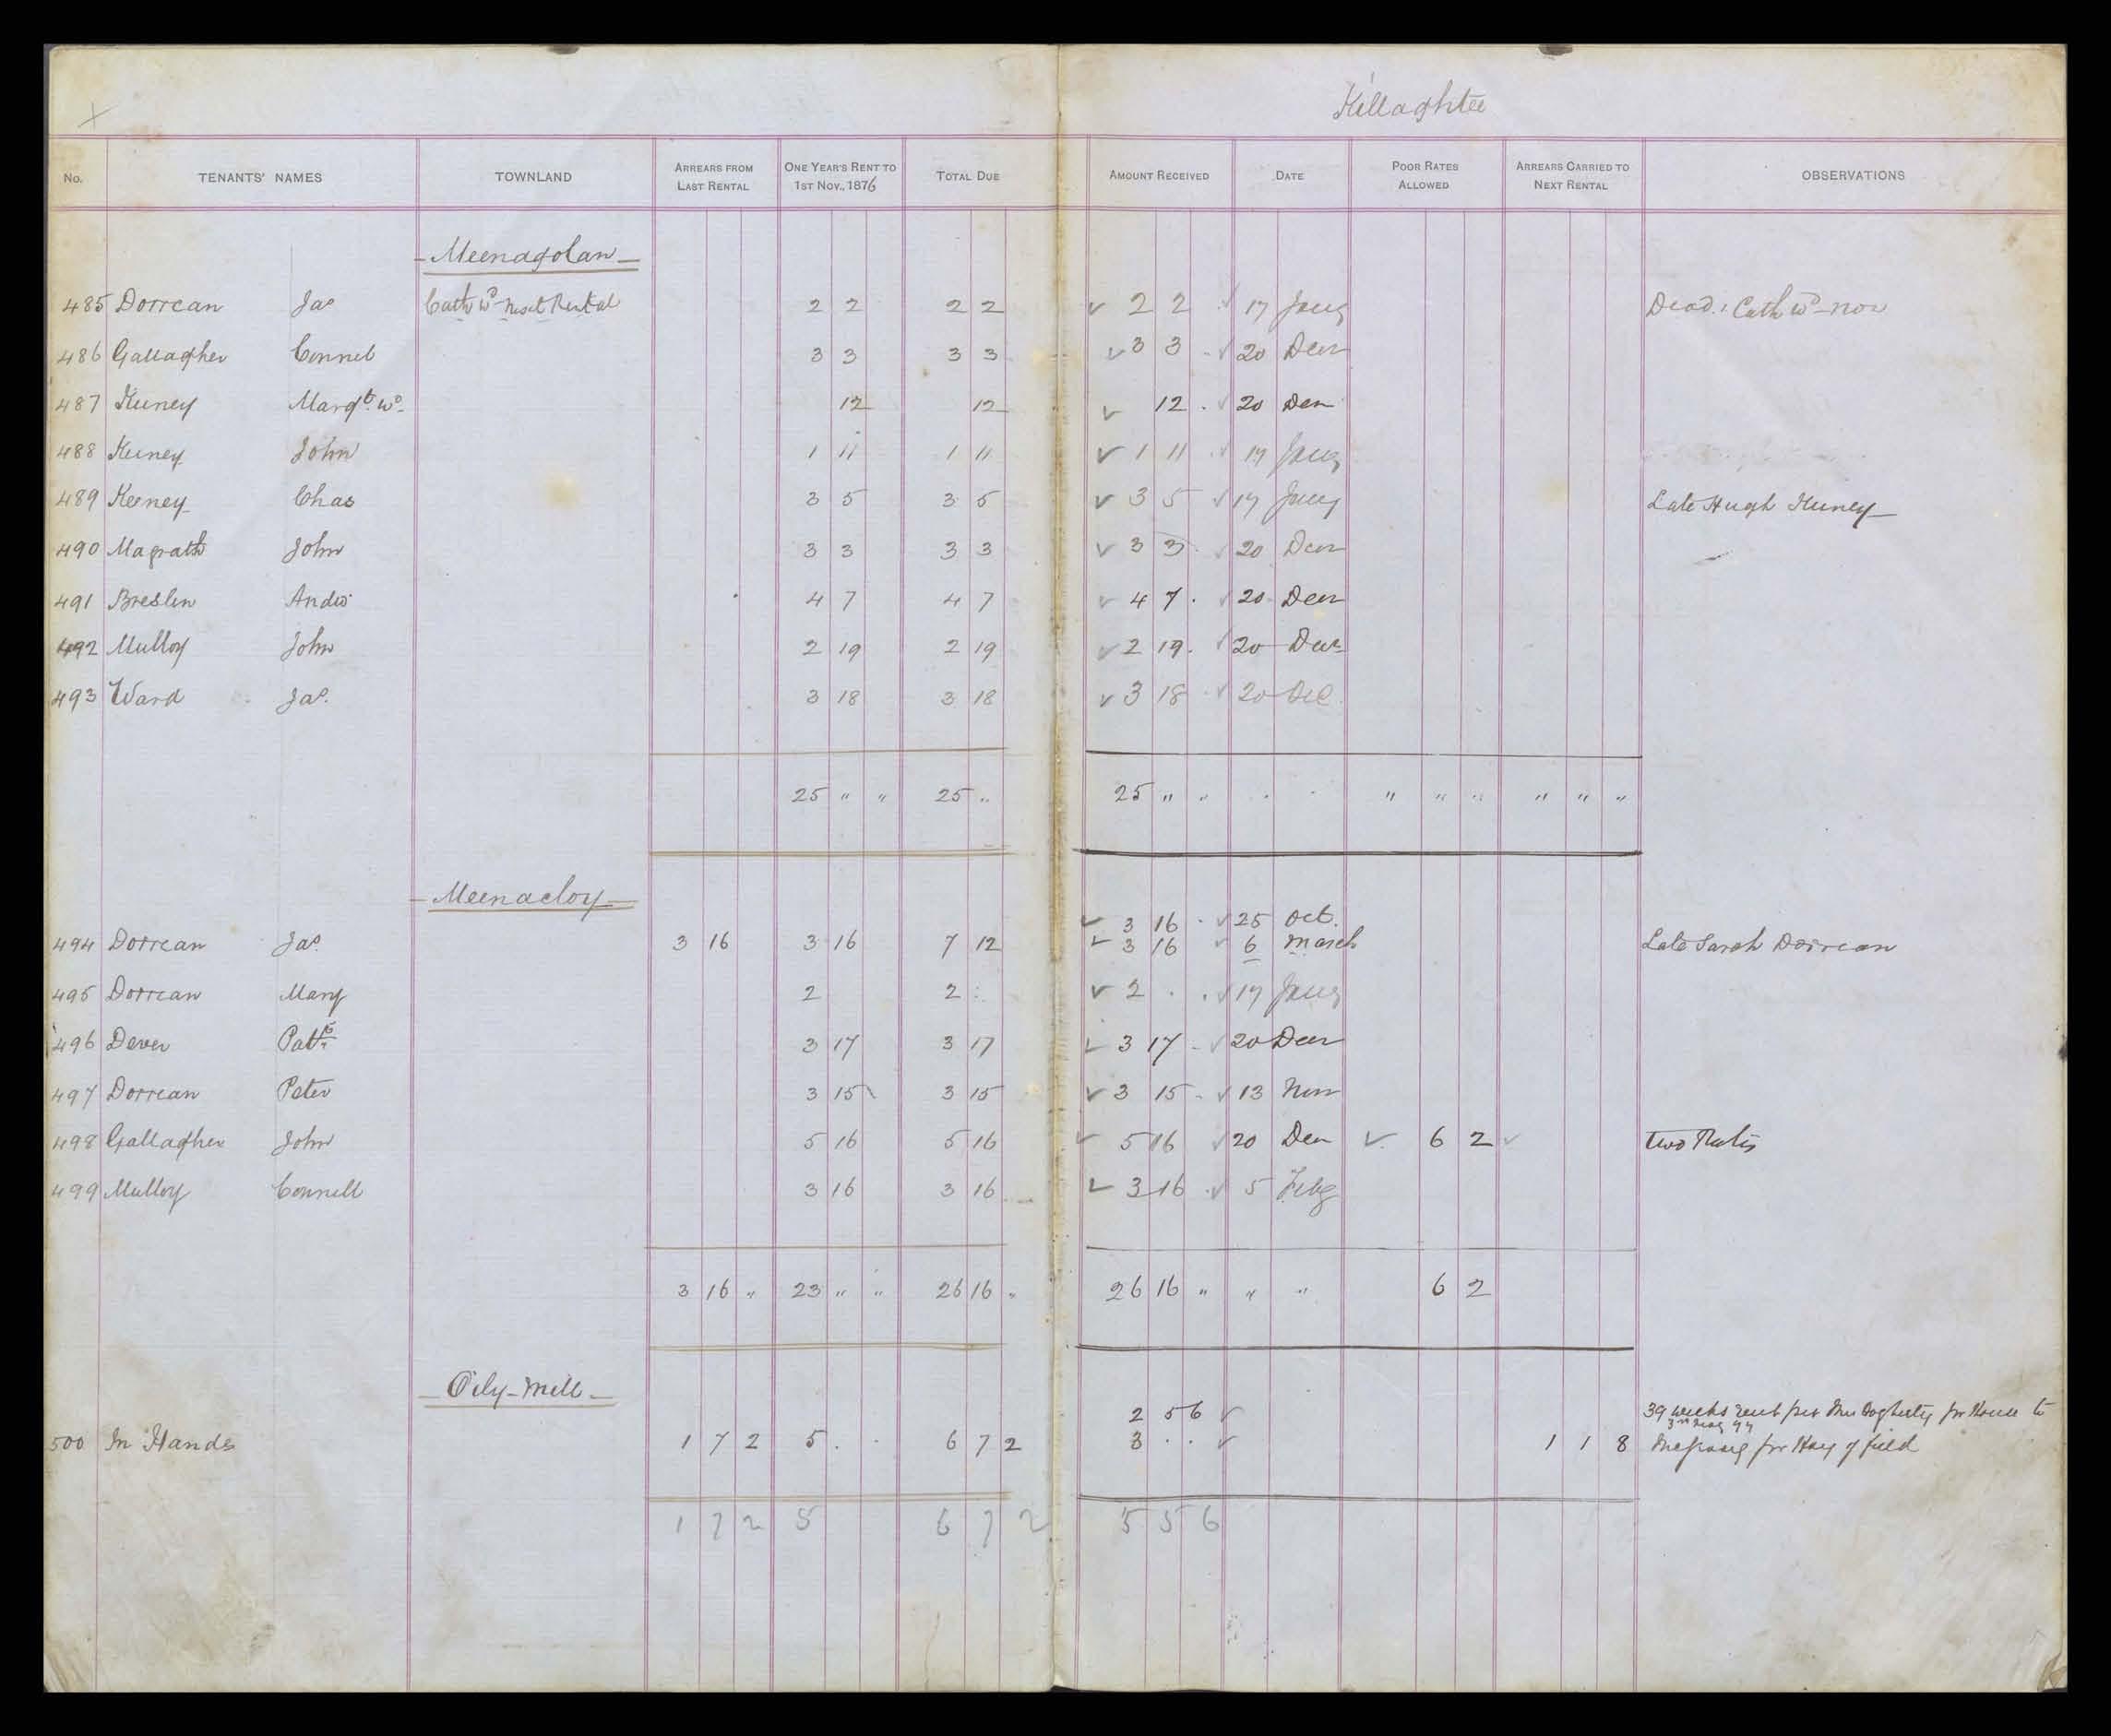 Killaghtee
No. TENANTS' NAMES TOWNLAND ARREARS FROM LAST RENTAL ONE YEAR'S RENT TO 1ST NOV., 1876 TOTAL DUE AMOUNT RECEIVED DATE POOR RATES ALLOWED ARREARS CARRIED TO NEXT RENTAL OBSERVATIONS
Meenagolan
485 Dorrean Jas Cath Wd next Rental 2 2 2 2 ✓ 2 2 ✓ 17 Jany Dead. Cath Wd now
486 Gallagher Connel 3 3 3 3 ✓ 3 3 . ✓ 20 Decr
487 Keeney Margt. Wd. 12 12 ✓ 12 . ✓ 20 Decr
488 Keeney John 1 11 1 11 ✓ 1 11 ✓ 17 Jany
489 Keeney Chas 3 5 3 5 ✓ 3 5 ✓ 17 Jany Late Hugh Keeney
490 Magrath John 3 3 3 3 ✓ 3 3 ✓ 20 Decr
491 Breslin Andw 4 7 4 7 ✓ 4 7 . ✓ 20 Decr
492 Mulloy John 2 19 2 19 ✓ 2 19 . ✓ 20 Decr
493 Ward Jas. 3 18 3 18 ✓ 3 18 ✓ 20 Dec
25 " " 25 " 25 " " " " " " " "
Meenacloy
✓ 3 16 . ✓ 25 Oct.
494 Dorrean Jas. 3 16 3 16 7 12 ✓ 3 16 ✓ 6 March Late Sarah Dorrean
495 Dorrean Mary 2 2 ✓ 2 . . ✓ 17 Jany
496 Dever Patk. 3 17 3 17 ✓ 3 17 - ✓ 20 Decr
497 Dorrean Peter 3 15 3 15 ✓ 3 15 - ✓ 13 Novr
498 Gallagher John 5 16 5 16 ✓ 5 16 ✓ 20 Decr ✓ 6 2 ✓ two Rates
499 Mulloy Connell 3 16 3 16 ✓ 3 16 . ✓ 5 Feby
3 16 " 23 " " 26 16 " 26 16 " " " 6 2
Oily-Mill
2 5 6 ✓ 39 weeks rent per Mrs Dogherty for House to
500 In Hands 1 7 2 5 . . 6 7 2 3 . . ✓ 1 1 8 for Hay of field
1 7 2 5 6 7 2 5 5 6